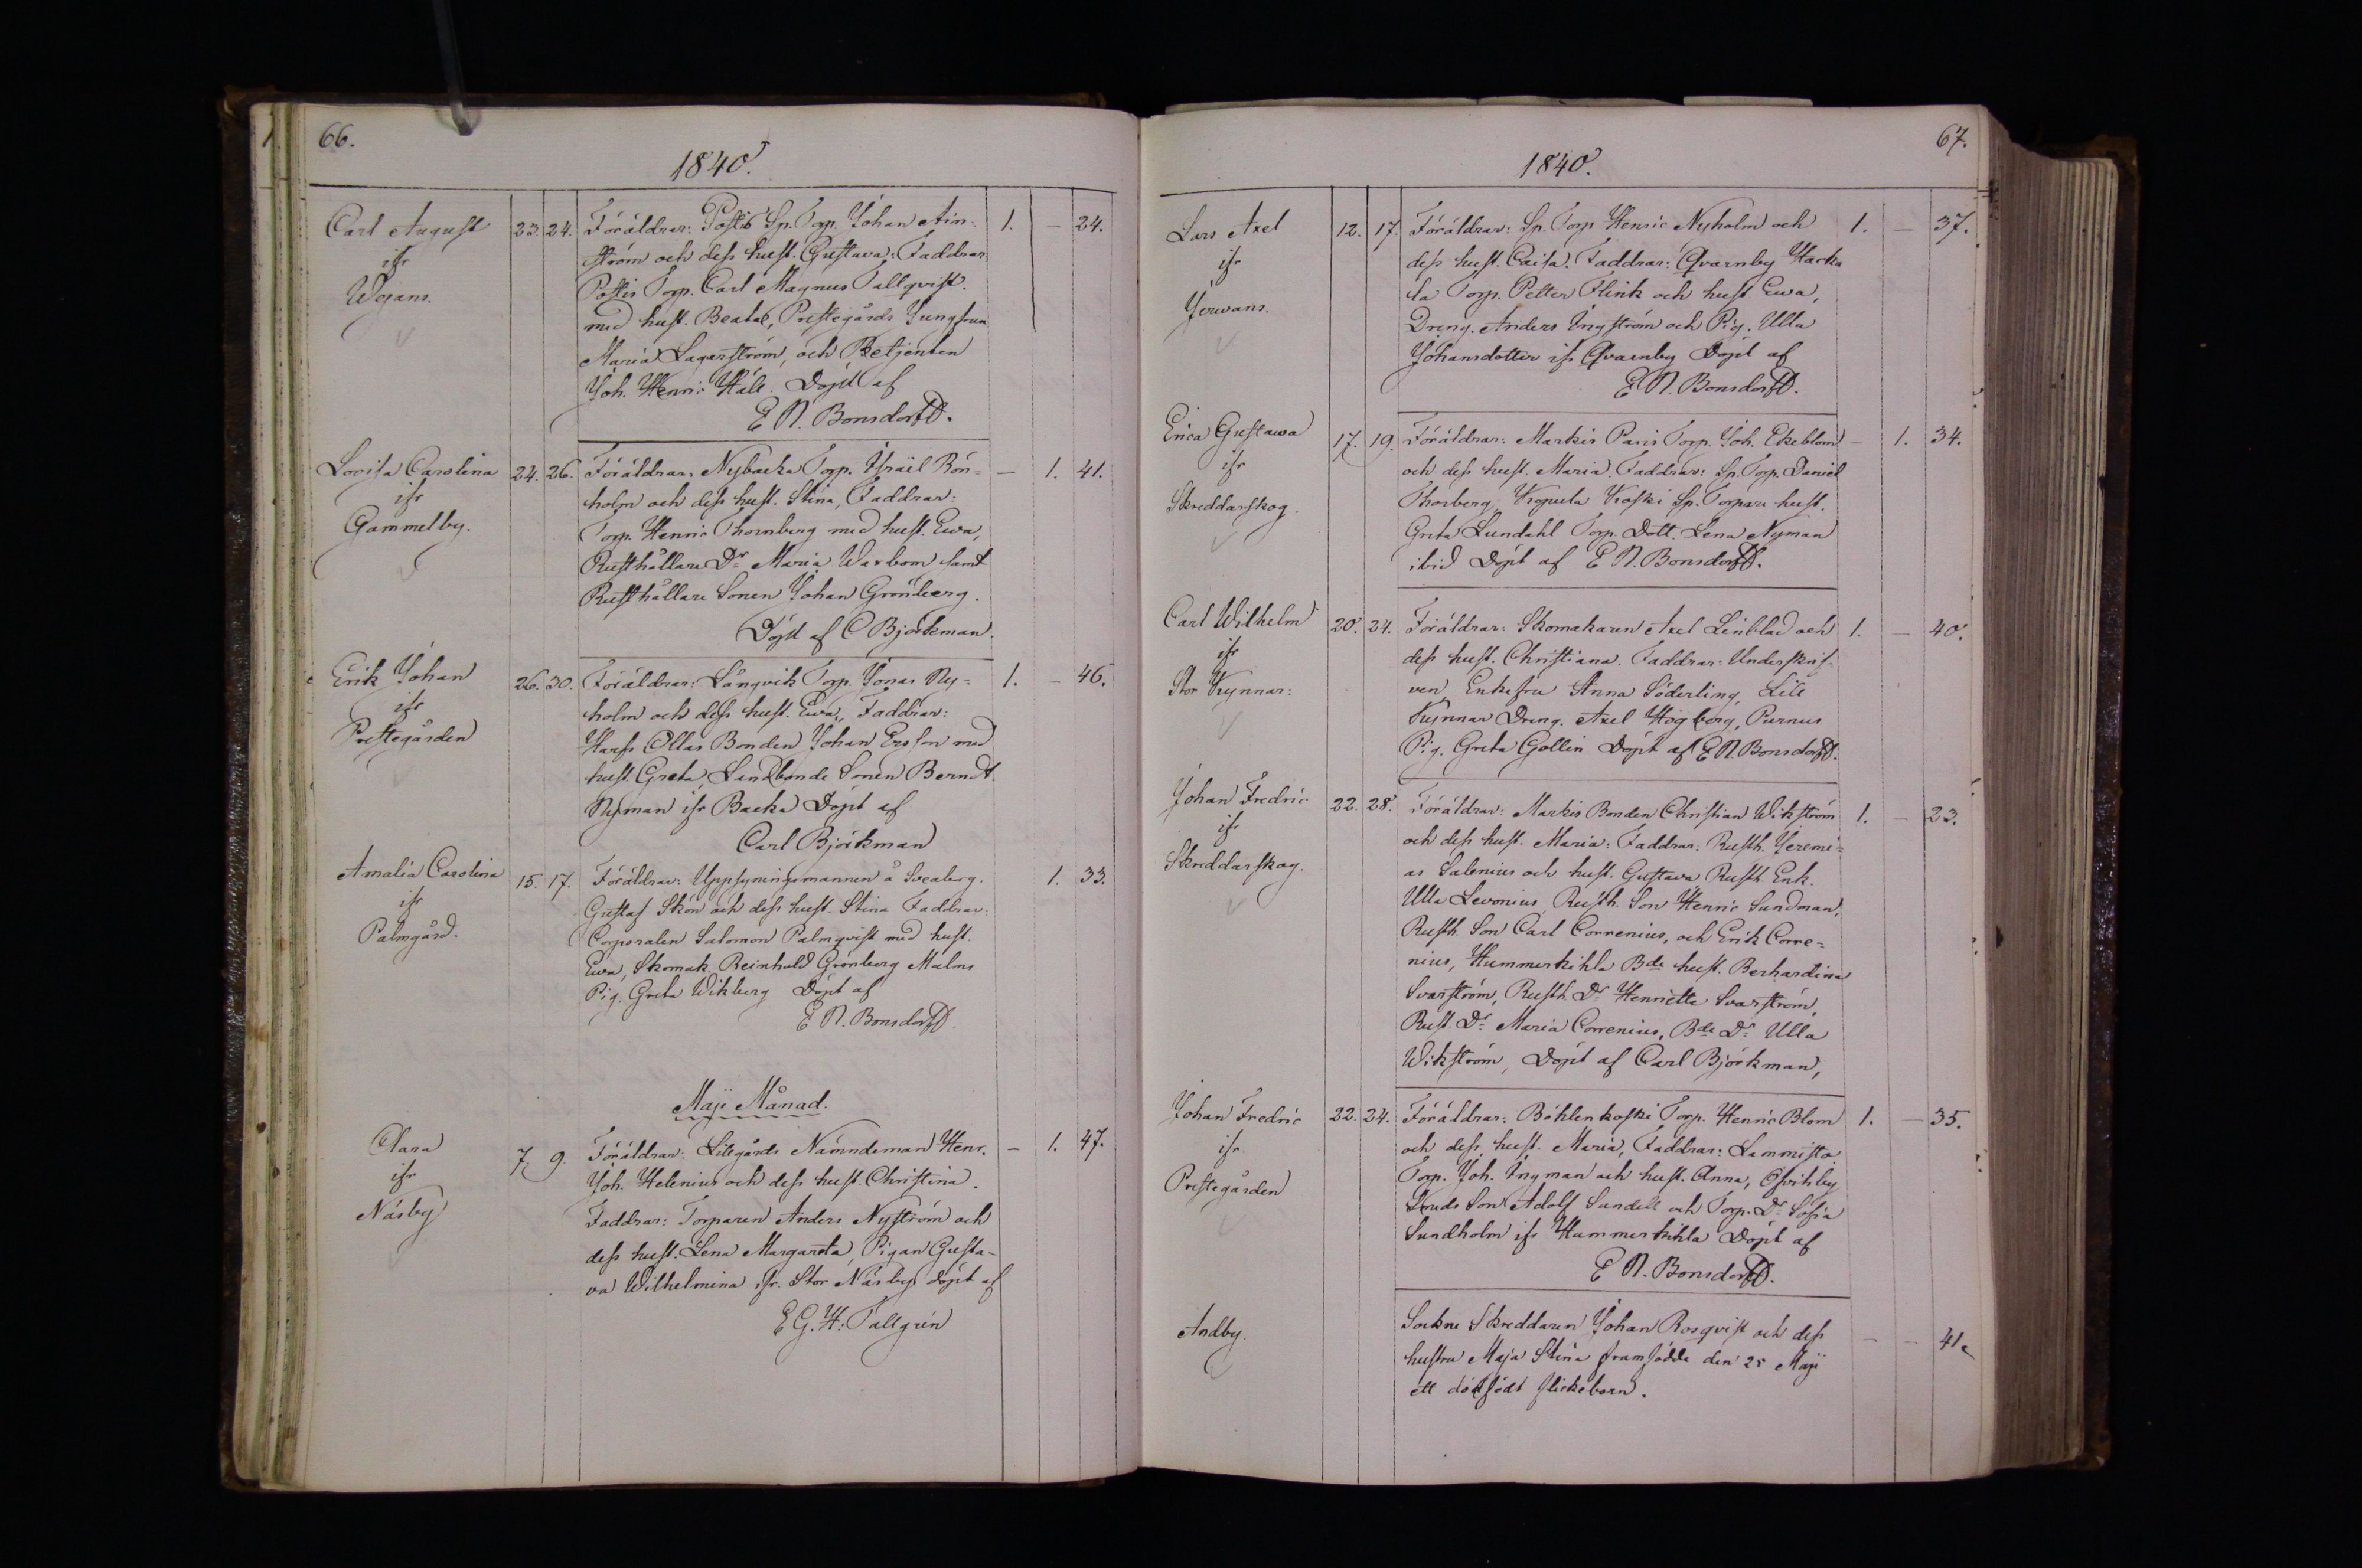 66.
1840.
Carl August 23. 24. Föräldrar: Postis Sp. Torp. Johan Ain- 1. — 24.
ifr ström och dess hust. Gustava: Faddrar
Wejans. Postis Torp. Carl Magnus Tallqvist.
med hust. Beata, Prestegårds Jungfrun
Maria Lagerström, och Betjenten
Joh. Henric Häll. Döpt af
E N. Bonsdorff.
Lovisa Carolina 24. 26. Föräldrar: Nybacka Torp. Israël Rön- — 1. 41.
ifr holm och dess hust. Stina, Faddrar:
Gammelby. Torp. Henric Thornberg med hust. Ewa,
Rusthållare Dr Maria Waxbom samt
Rusthållare Sonen Johan Grönberg.
Döpt af C Björkman.
Erik Johan 26. 30. Föräldrar: Långvik Torp. Jonas Ny- 1. — 46.
ifr holm och dess hust. Ewa, Faddrar:
Prestegården Ollas Bonden Johan Ersson med
hust. Greta, Landbonde Sonen Berndt.
Nyman ifr Backa Döpt af
Carl Björkman
Amalia Carolina 15. 17. Föräldrar: Uppsyningsmannen å Sveaborg. 1. 33.
ifr Gustaf Skön och dess hust. Stina Faddrar:
Palmgård. Corporalen Salomon Palmqvist med hust.
Ewa, Skomak. Reinhold Grönberg Malms
Pig. Greta Wikberg Döpt af
E N. Bonsdorff.
Maji Månad.
Clara 7 9. Föräldrar: Lillgårds Nämndeman Henr. — 1. 47.
ifr Joh. Helenius och dess hust. Christina.
Näsby Faddrar: Torparen Anders Nyström och
dess hust. Lena Margareta, Pigan Gusta-
va Wilhelmina ifr. Stor Näsby döpt af
E G. H: Tallgrén
67.
1840.
Lars Axel 12. 17. Föräldrar: Sp. Torp Henric Nyholm och 1. — 37.
ifr dess hust. Caisa. Faddrar: Qvarnby Hacka
Jerwans. la Torp. Petter Flink och hust Ewa,
Dreng. Anders Ingström och Pig. Ulla
Johansdotter ifr Qvarnby Döpt af
E N. Bonsdorff.
Erica Gustawa 17. 19. Föräldrar: Markis Paris Torp. Joh. Ekeblom — 1. 34.
ifr och dess hust. Maria. Faddrar: Sp. Torp. Daniel
Skreddarskog. Thorberg Koski Sp. Torpare hust.
Greta Lundahl Torp. Dott. Lena Nyman
ibid Döpt af E N. Bonsdorff.
Carl Wilhelm 20. 24. Föräldrar: Skomakaren Axel Linblad och 1. — 40.
ifr dess hust. Christiana. Faddrar: Underskrif-
Stor Kynnar: ven, Enkefru Anna Söderling, Lill
Kynnar Dreng. Axel Högberg, Purnus
Pig. Greta Gallin Döpt af E N. Bonsdorff.
Johan Fredric 22. 28. Föräldrar: Markis Bonden Christian Wikström 1. — 23.
ifr och dess hust. Maria: Faddrar: Rusth. Jeremi-
Skreddarskog. as Salenius och hust. Gustava Rusth. Enk.
Ulla Levonius, Rusth. Son Henric Sundman,
Rusth. Son Carl Correnius, och Erik Corre-
nius, Hummerkihla Bde hust. Berhardina
Svarström, Rusth. Dr Henriette Svarström,
Rust. Dr Maria Correnius, Bde Dr Ulla
Wikström, Döpt af Carl Björkman,
Johan Fredric 22. 24. Föräldrar: Böhlenkoski Torp. Henric Blom 1. — 35.
ifr och dess hust. Maria, Faddrar: Lammisto
Prestegården Torp. Joh. Ingman och hust. Anna,
Son Adolf Sundell och Torp. Dr Sofia
Sundholm ifr Hummerkihla Döpt af
E N. Bonsdorff.
Andby. Sockne Skreddaren Johan Rosqvist och dess — — 41.
hustru Maja Stina framfödde den 25 Maji
ett dödfödt flickebarn.